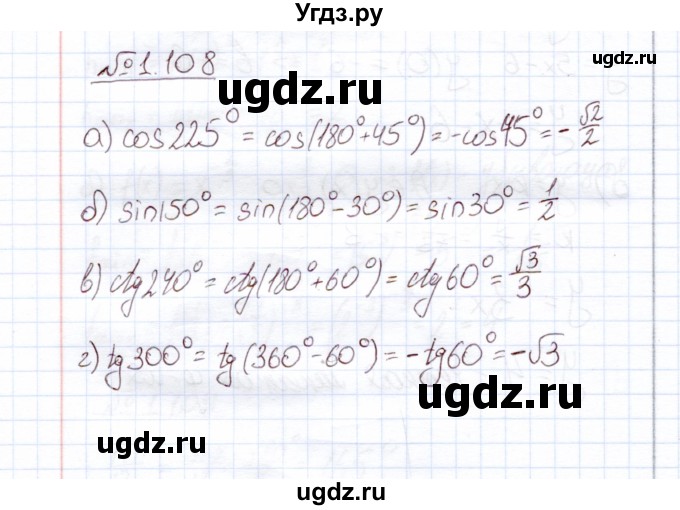 Угдз.ру
№1.108
ugdz.ru
ugdz.ru
ugdz.ru
а) cos225° = cos(180°+45°) = -cos45° = -√2/2
б) sin150° = sin(180°-30°) = sin30° = 1/2
ugdz.ru
в) ctg240° = ctg(180°+60°) = ctg60° = √3/3
г) tg300° = tg(360°-60°) = -tg60° = -√3
ugdz.ru
ugdz.ru
ugdz.ru